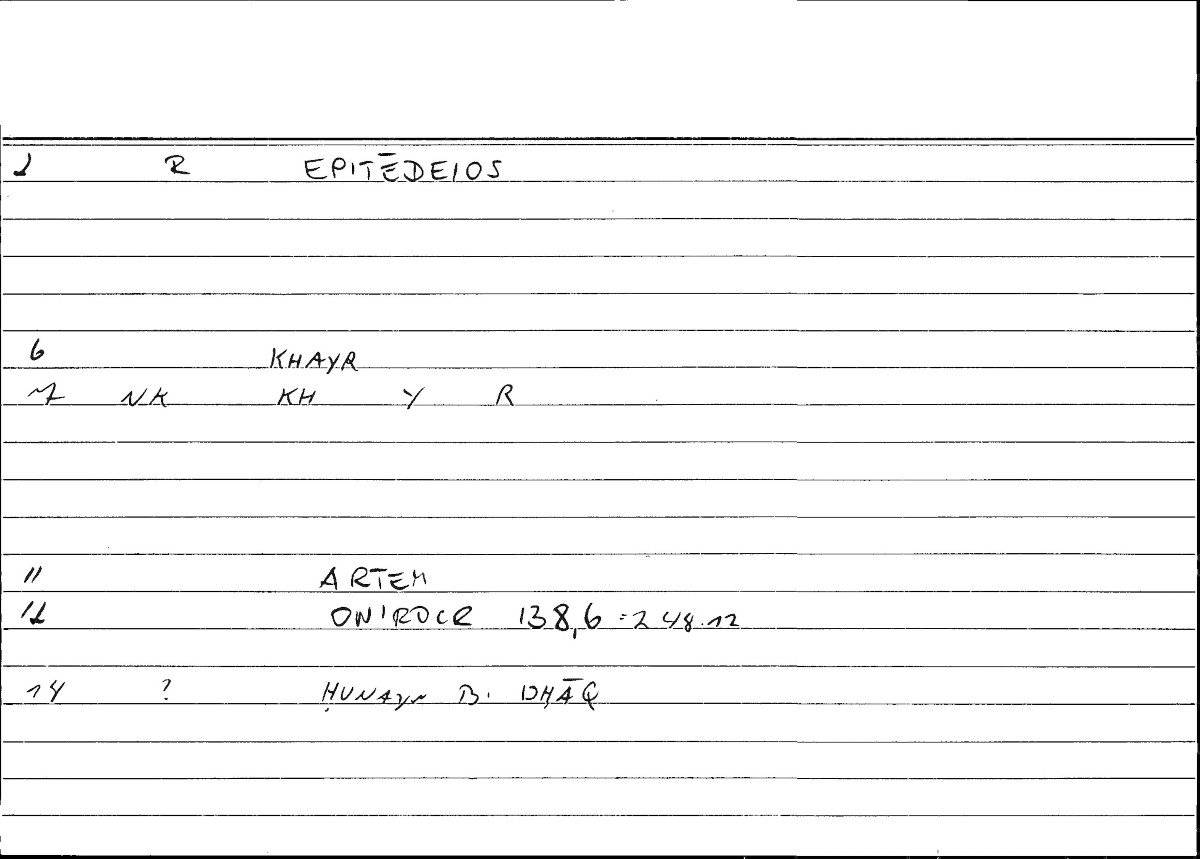 1 R EPITĒDEIOS
6 KHAYR
7 NK KH Y R
11 ARTEM
12 ONIROCR 138,6 = 248.12
14 ? ḤUNAYN B. ISḤĀQ